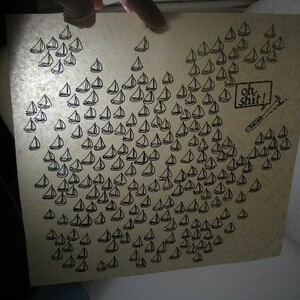 oh,
shit!